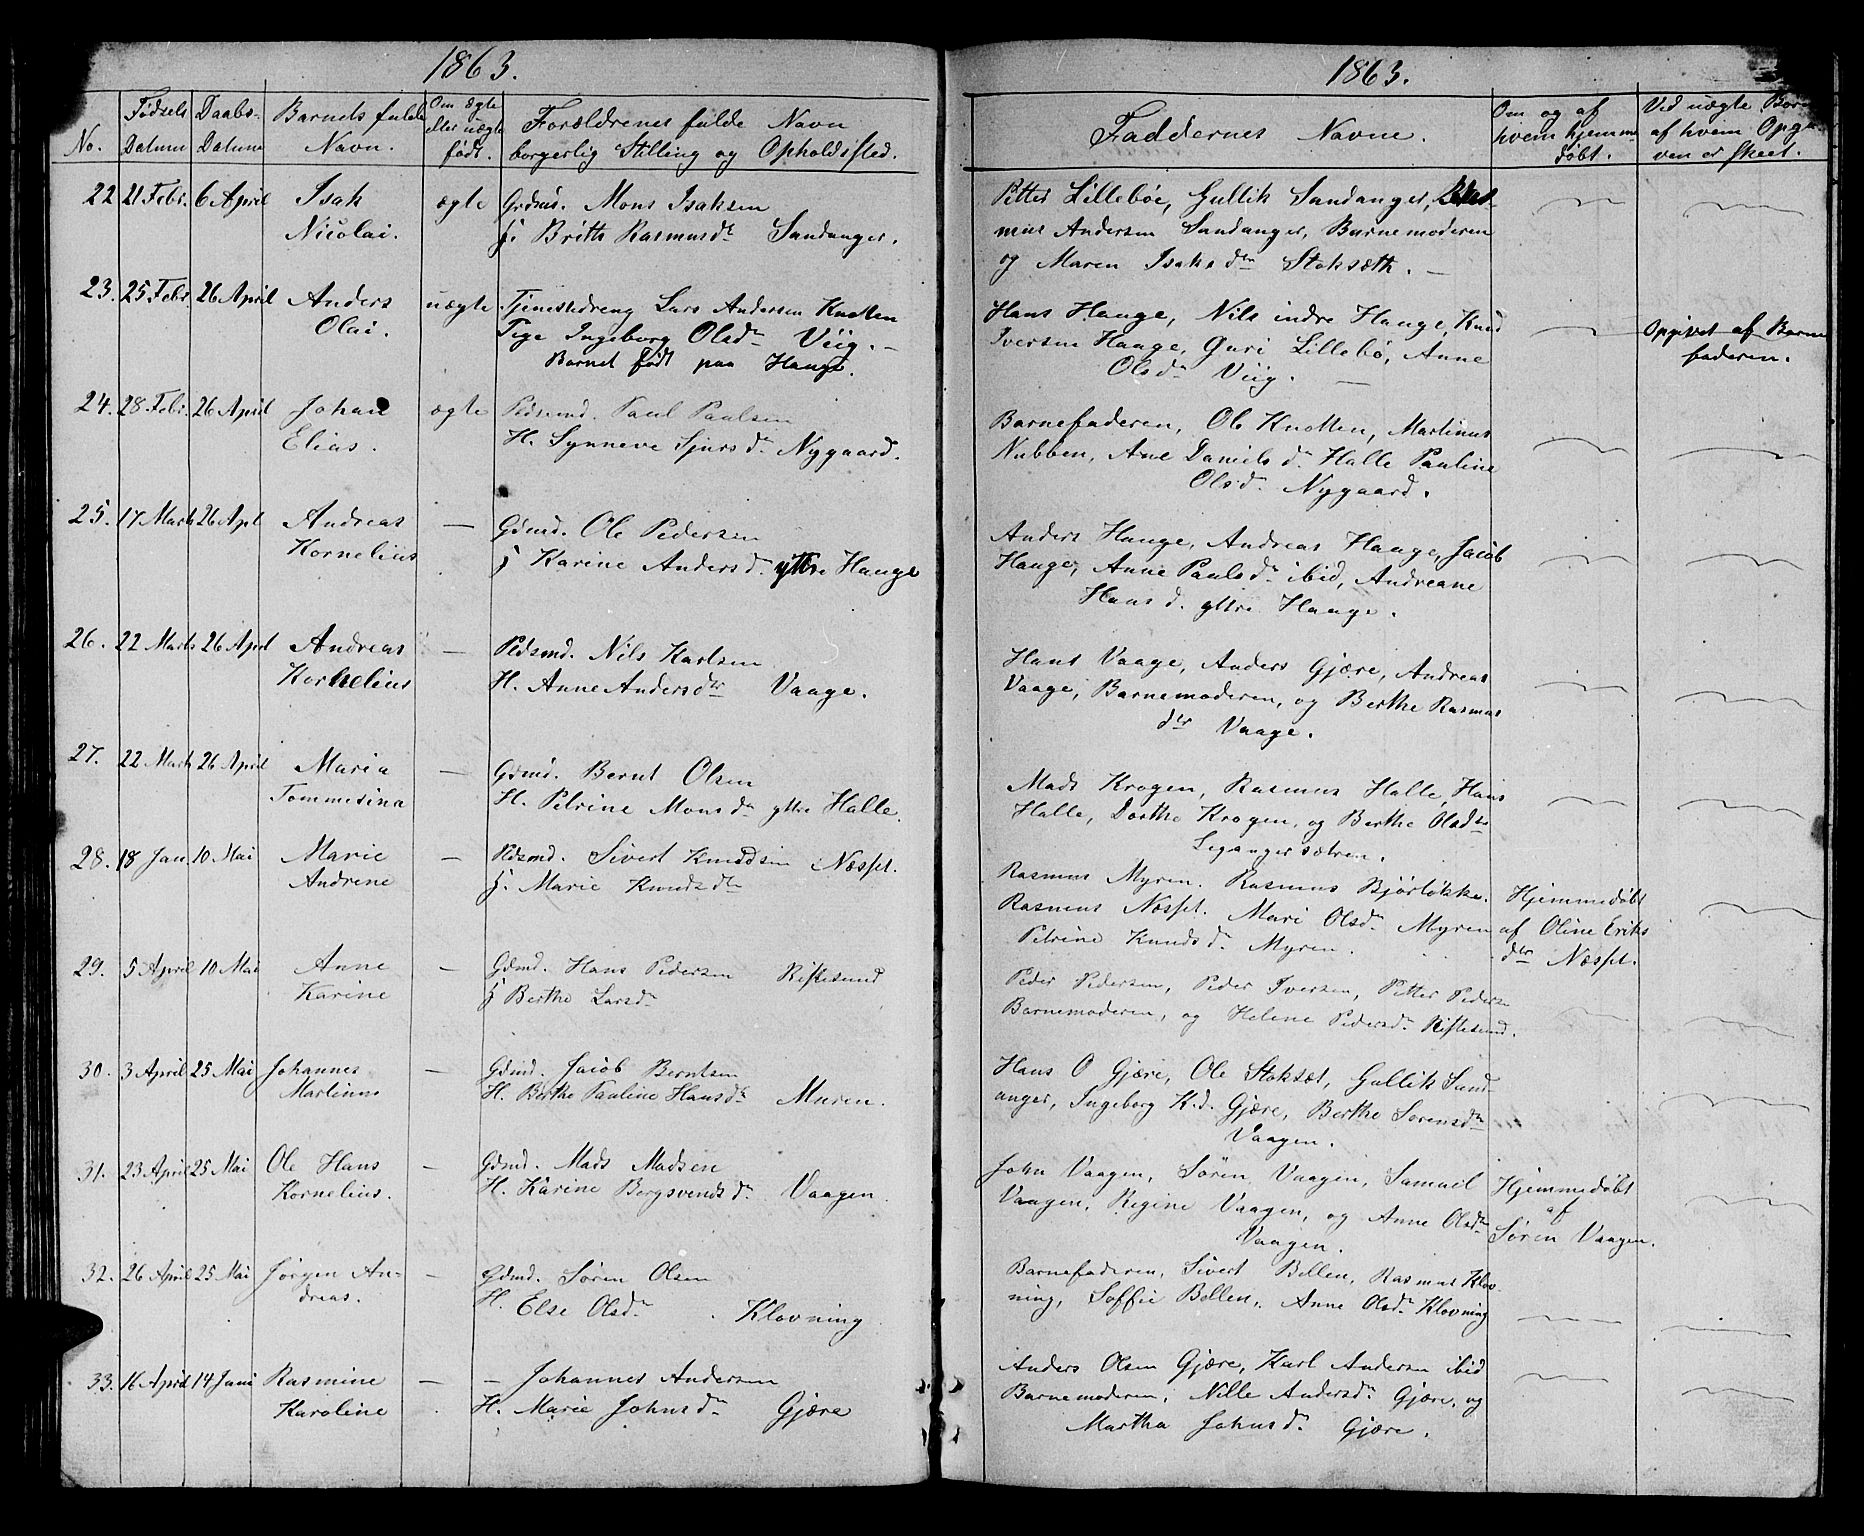 1863.
No.
Fødsels Datum
Daabs- Datum
Barnets fulde Navn.
Om ægte eller uægte født.
Forældrenes fulde Navn
borgerlig Stilling og Opholdssted.
22 21 Febr. 6 April Isak ægte Grdmd. Mons Isaksen
Nicolai. H. Brithe Rasmusdr Sandanger.
23. 25 Febr. 26 April Anders uægte Tjenestedreng Lars Andersen Knotten
Olai. Pige Ingeborg Olsdr Viig. –
Barnet født paa Hauge.
24. 28 Febr. 26 April Johan ægte Pldsmd. Paul Paulsen
Elias. H. Synneve Sjursdr. Nygaard.
25. 17 Marts 26 Apl Andreas — Gdmd. Ole Pedersen
Kornelius H. Karine Andersd. yttre Hauge
26. 22 Marts 26 April Andreas — Pldsmd. Nils Karlsen
Kornelius H. Anne Andersdtr Vaage.
27. 22 Marts 26 April Maria — Gdmd. Bernt Olsen
Tommesina H. Petrine Monsdr yttre Halle.
28. 18 Jan 10 Mai Marie — Pldsmd. Sivert Knudsen Næsset.
Andrene H. Marie Knudsdtr
29. 5 April 10 Mai Anne — Gdmd. Hans Pedersen Riflesund
Karine H. Berthe Larsdr
30. 3 April 25 Mai Johannes — Gdmd. Jacob Berntsen
Martinus H. Berthe Pauline Hansdr Muren.
31. 23 April 25 Mai Ole Hans — Gdmd. Mads Madsen
Kornelius. H. Karine Bergsvendsdr. Vaagen.
32. 26 April 25 Mai Jørgen An- — Gdmd. Søren Olsen
dreas. H. Else Olsdr. Klovning
33. 16 April 14 Juni Rasmine — – Johannes Andersen
Karoline H. Marie Johnsdr Gjære
1863.
Faddernes Navne.
Om og af hvem hjemme døbt.
Ved uægte Børn af hvem Opgi- ven er skeet.
Petter Lillebøe, Gullik Sandanger, Ras-
mus Andersen Sandanger, Barnemoderen
og Maren Isaksdtr Stoksæth. –
Hans Hauge, Nils indre Hauge, Knud
Iversen Hauge, Guri Lillebø, Anne
Olsdr Viig. —
Opgivet af Barne
faderen.
Barnefaderen, Ole Knotten, Martinus
Nubben, Ane Danielsdr. Halle Pauline
Olsd. Nygaard.
Anders Hauge, Andreas Hauge, Jacob
Hauge, Anne Paulsdr ibid, Andreane
Hansd. yttre Hauge.
Hans Vaage, Anders Gjære, Andreas
Vaage, Barnemoderen, og Berthe Rasmus
dtr Vaage.
Mads Krogen, Rasmus Halle, Hans
Halle, Dorthe Krogen, og Berthe Olsdtr
Legangersætren.
Rasmus Myren. Rasmus Bjørløkke.
Rasmus Næsset. Mari Olsdr Myren
Petrine Knudsdr. Myren.
Hjemmedøbt
af Oline Eriks
dtr Næsset.
Peder Pedersen, Peder Iversen, Petter Peders
Barnemoderen, og Helene Pedersdr Riflesund.
Hans O Gjære, Ole Stokset, Gullik Sand-
anger, Ingeborg K.d. Gjære, Berthe Sørensdr
Vaagen.
John Vaagen, Søren Vaagen, Samuel
Vaagen, Regine Vaagen, og Anne Olsdtr
Vaagen.
Hjemmedøbt
af
Søren Vaagen.
Barnefaderen, Sivert Bellen, Rasmus Klov-
ning, Soffie Bellen, Anne Olsdr Klovning
Anders Olsen Gjære, Karl Andersen ibid
Barnemoderen, Nille Andersdr Gjære, og
Martha Johnsdr. Gjære.